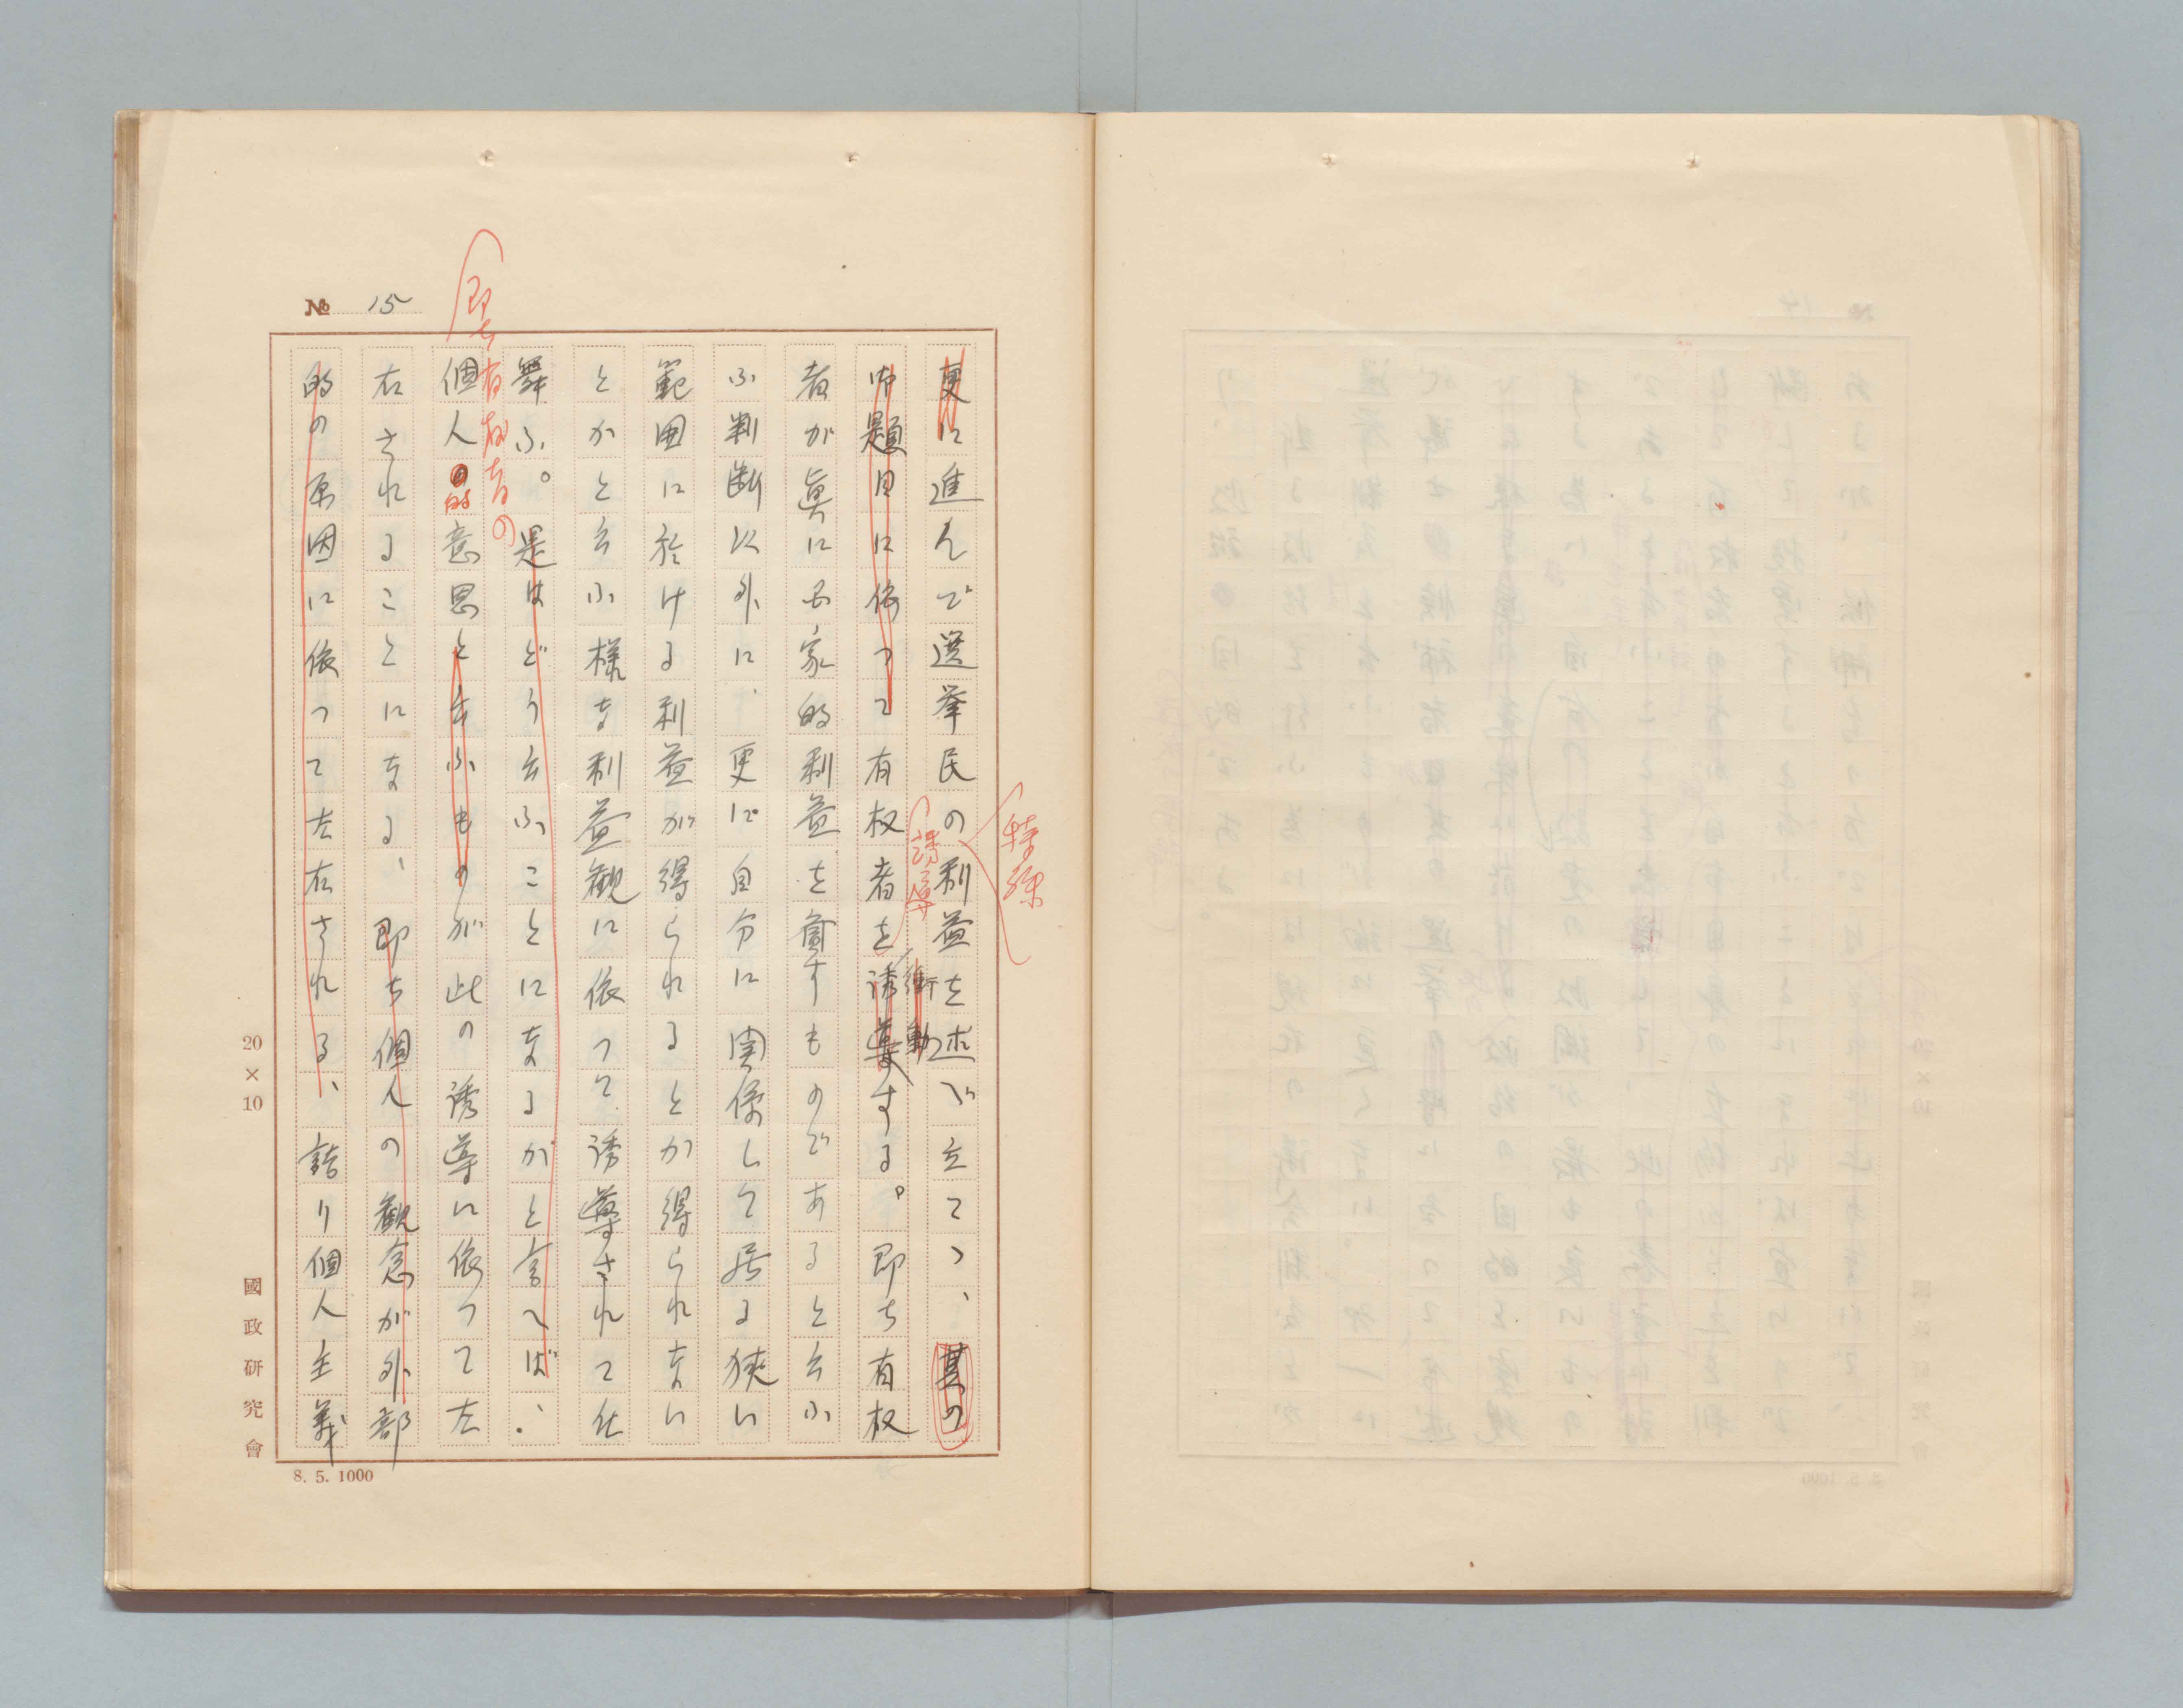 № 15
更に進んで選挙民の利益を述べ立てつ、其の
特殊
御題目に依つて有权者を誘導する。即ち有权
誘導
衝動
者が真に国家的利益を齎すものであると云ふ
ふ判断以外に、更に自分に関係して居る狭い
範囲に於ける利益が得られるとか得られない
とかと云ふ様な利益観に依つて誘導されて仕
舞ふ。是はどう云ふことになるがと言へば、
即ち有权者の
個人的意思と云ふものが此の誘導に依つて左
的
右されることになる、即ち個人の観念が外部
的の原因に依つて左右される、詰り個人主義
20×10
國政研究會
8. 5. 1000